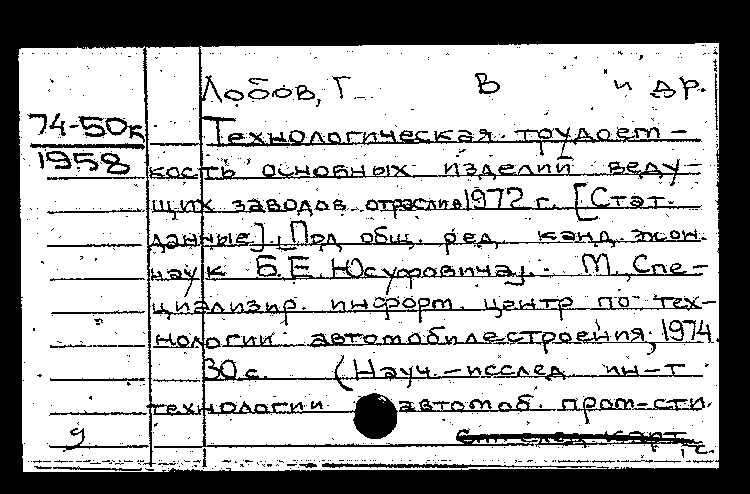 Лобов, Г. В и др.
74-50к
1958
Технологическая трудоем-
кость основных изделий веду-
щих заводов отрасли в 1972 г. [Стат.
данные]. [Под общ. ред. канд. экон.
наук Б.Е. Юсуфовича]. М., Спе-
циализир. информ. центр по тех-
нологии автомобилестроения, 1974.
30 с. (Науч.-исслед. ин-т
технологии автомоб. пром-сти.